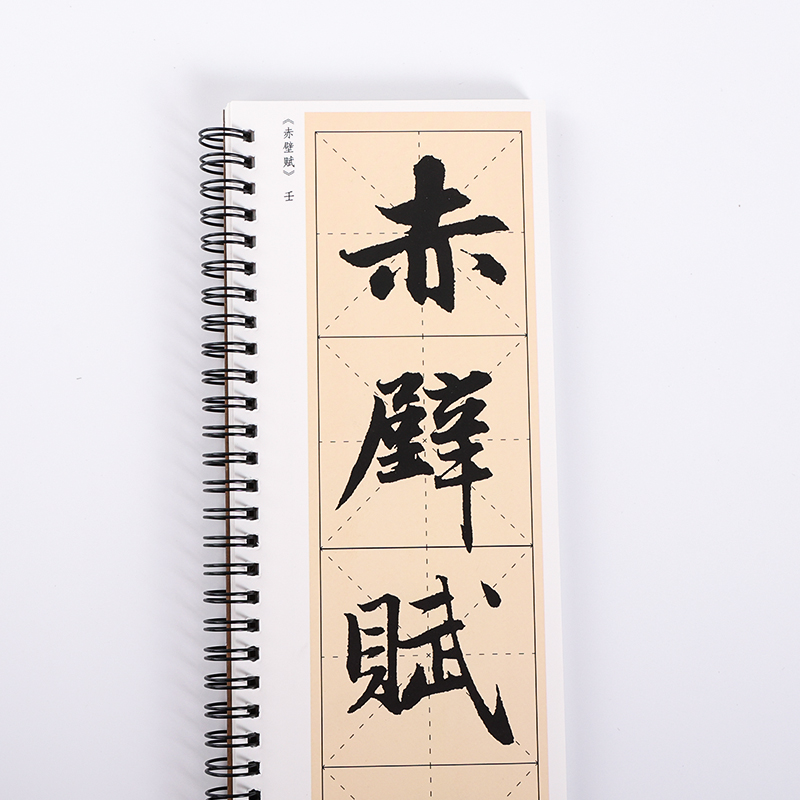 《赤壁赋》 壬
赤壁賦